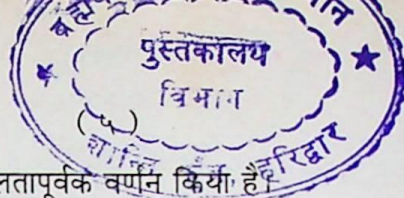 पुस्तकालय
विभाग
(५)
शान्ति हरिद्वार
लतापूर्वक वर्णन किया है।